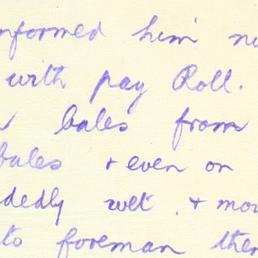 informed him
with pay Roll.
bales from
bales + even on
dedly wet. +
to foreman